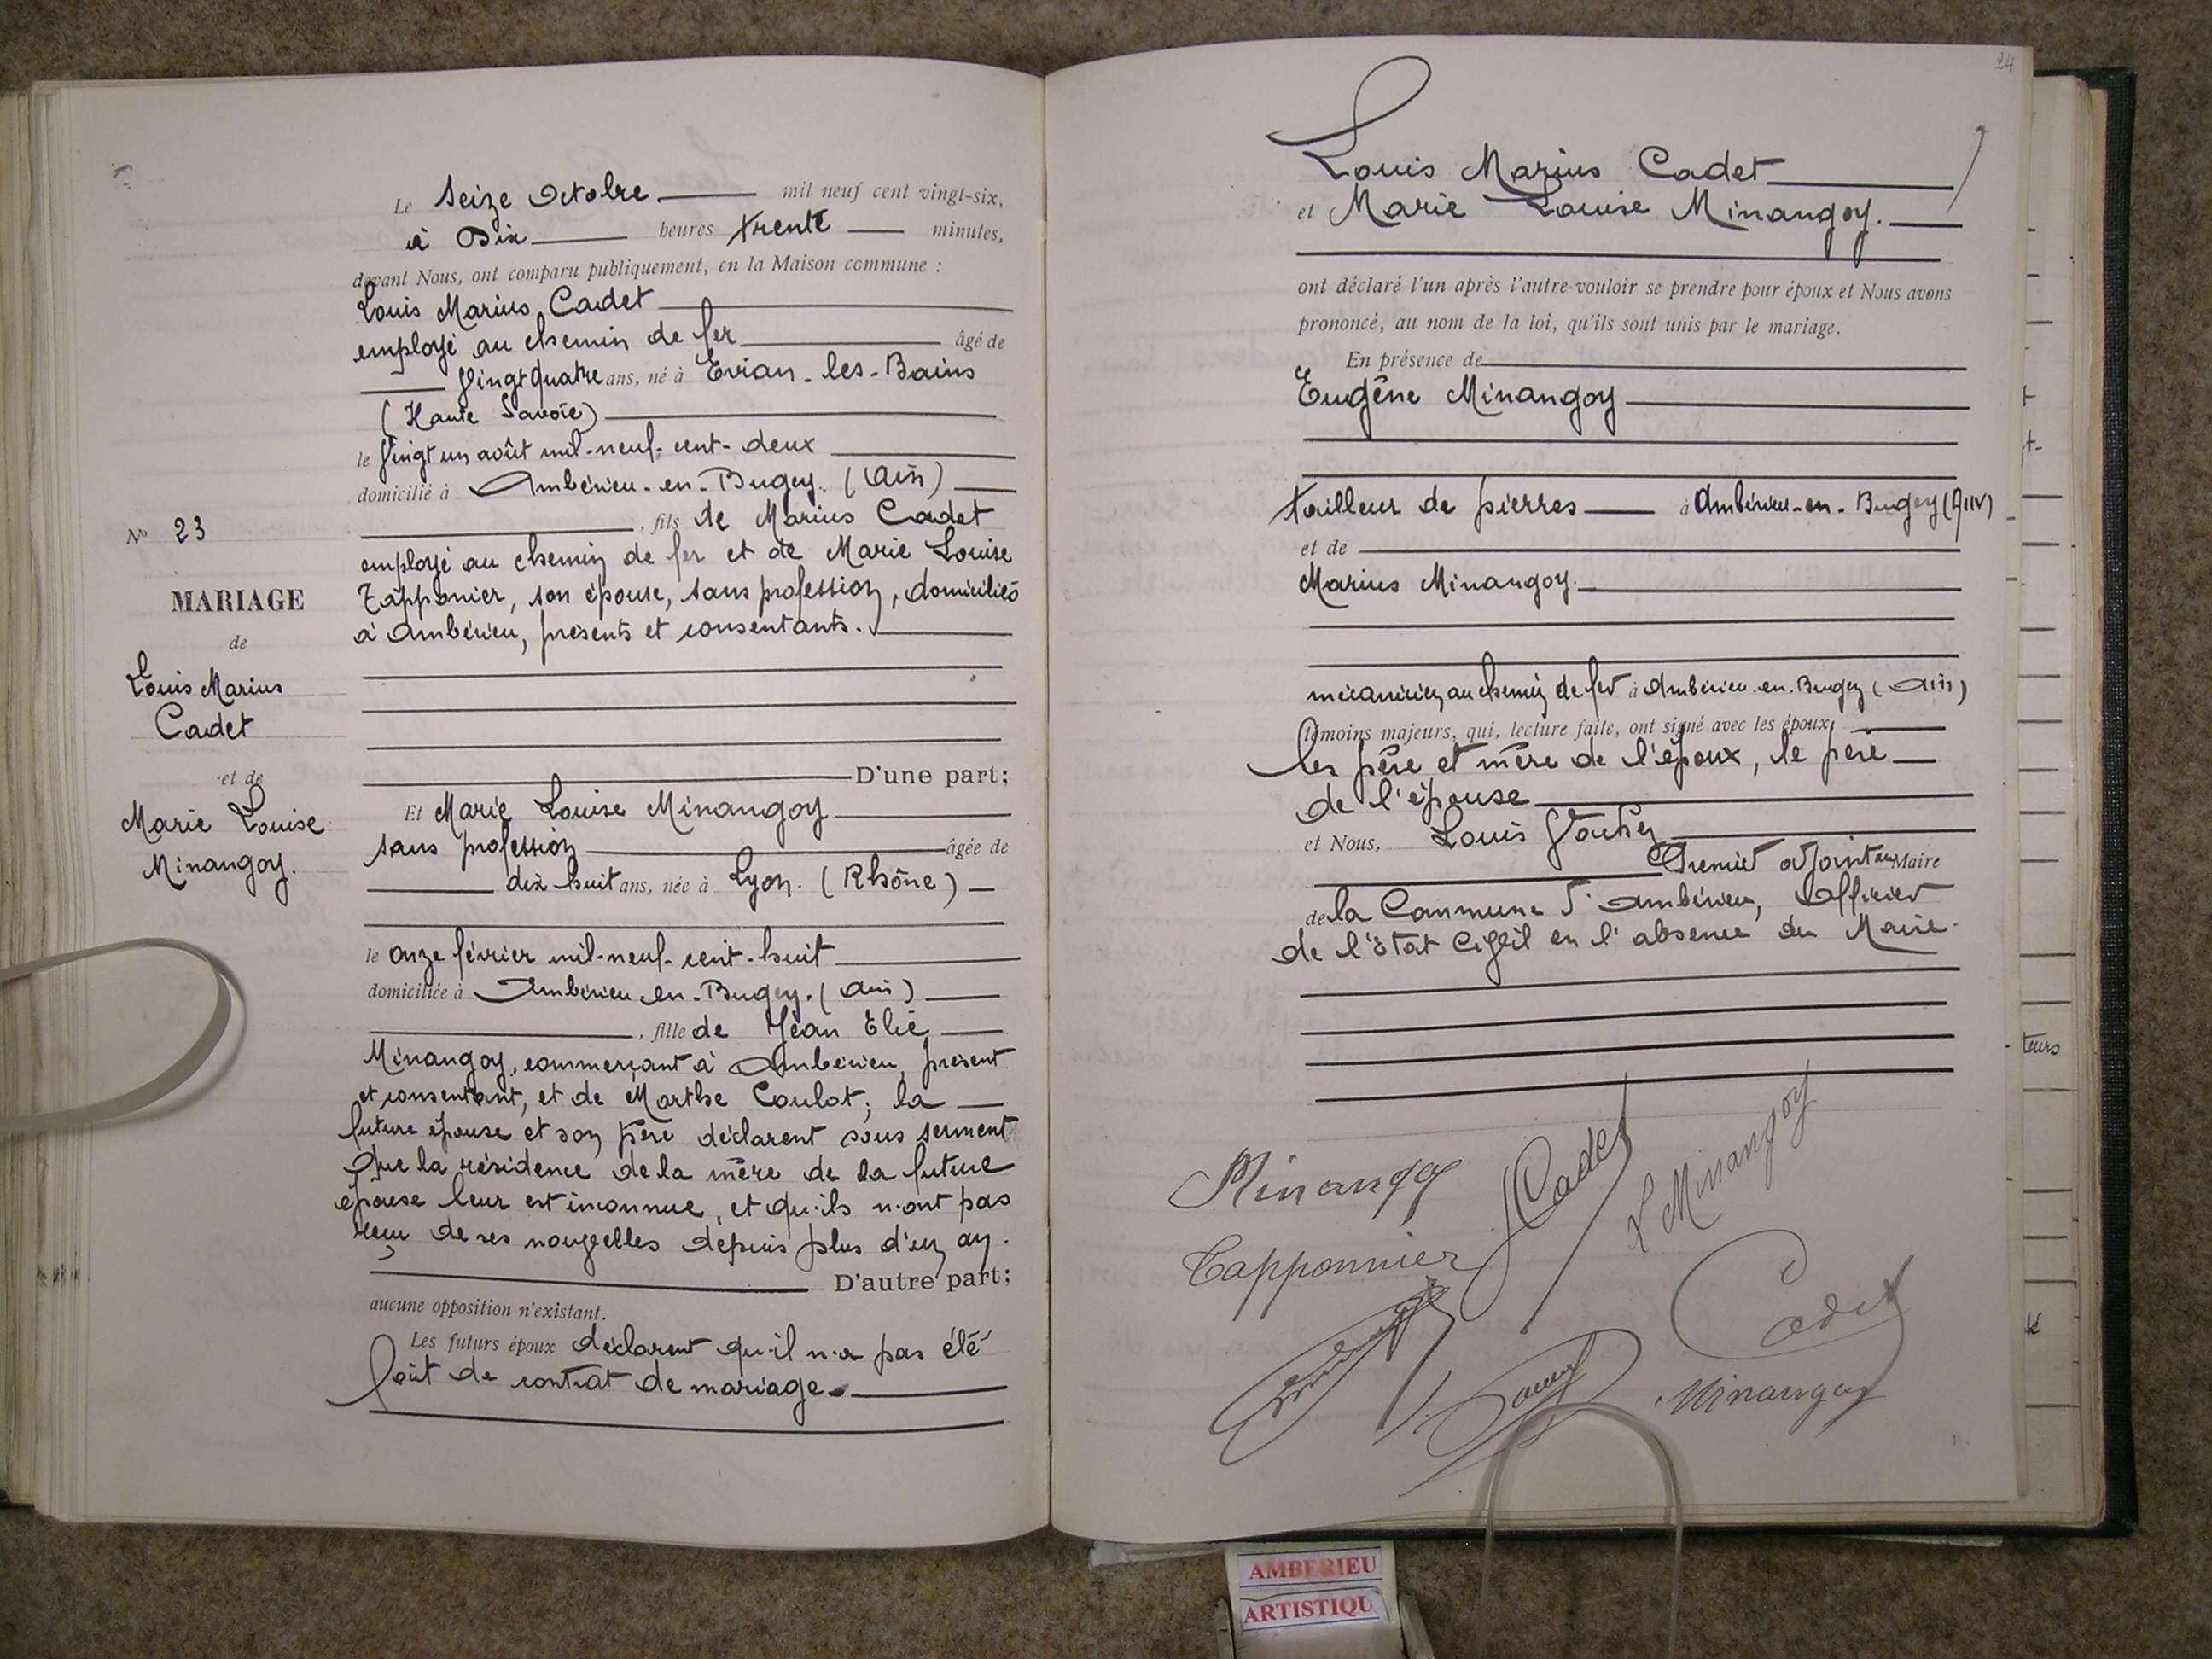 N° 23
MARIAGE
de
Louis Marius
Cadet
et de
Marie Louise
Minangoy.
Le Seize Octobre mil neuf cent vingt-six,
à Dix heures trente minutes,
devant Nous, ont comparu publiquement, en la Maison commune :
Louis Marius Cadet
employé au chemin de fer âgé de
Vingt quatre ans, né à Evian-les-Bains
(Haute Savoie)
le Vingt un août mil-neuf-cent-deux
domicilié à Ambérieu-en-Bugey. (Ain)
, fils de Marius Cadet
employé au chemin de fer et de Marie Louise
Tapponier, son épouse, sans profession, domiciliés
à Ambérieu, présents et consentants.
D'une part;
Et Marie Louise Minangoy
sans profession âgée de
dix huit ans, née à Lyon. (Rhône)
le onze février mil-neuf-cent-huit
domiciliée à Ambérieu en-Bugey. (Ain)
, fille de Jean Elie
Minangoy, commerçant à Ambérieu, présent
et consentant, et de Marthe Coulot; la
future épouse et son père déclarent sous serment
que la résidence de la mère de la future
épouse leur est inconnue, et qu'ils n'ont pas
reçu de ses nouvelles depuis plus d'un an.
D'autre part;
aucune opposition n'existant.
Les futurs époux déclarent qu'il n'a pas été
fait de contrat de mariage.
24
Louis Marius Cadet
et Marie Louise Minangoy.
ont déclaré l'un après l'autre vouloir se prendre pour époux et Nous avons
prononcé, au nom de la loi, qu'ils sont unis par le mariage.
En présence de
Eugène Minangoy
tailleur de pierres à Ambérieu-en-Bugey (Ain)
et de
Marius Minangoy.
mécanicien au chemin de fer à Ambérieu-en-Bugey (Ain)
témoins majeurs, qui, lecture faite, ont signé avec les époux,
les père et mère de l'époux, le père
de l'épouse
et Nous, Louis
Premier adjoint au Maire
de la Commune d'Ambérieu, Officier
de l'Etat Civil en l'absence du Maire.
Minangoy Cadet L Minangoy
Tapponnier
Cadet
Minangoy
teurs
AMBERIEU
ARTISTIQU